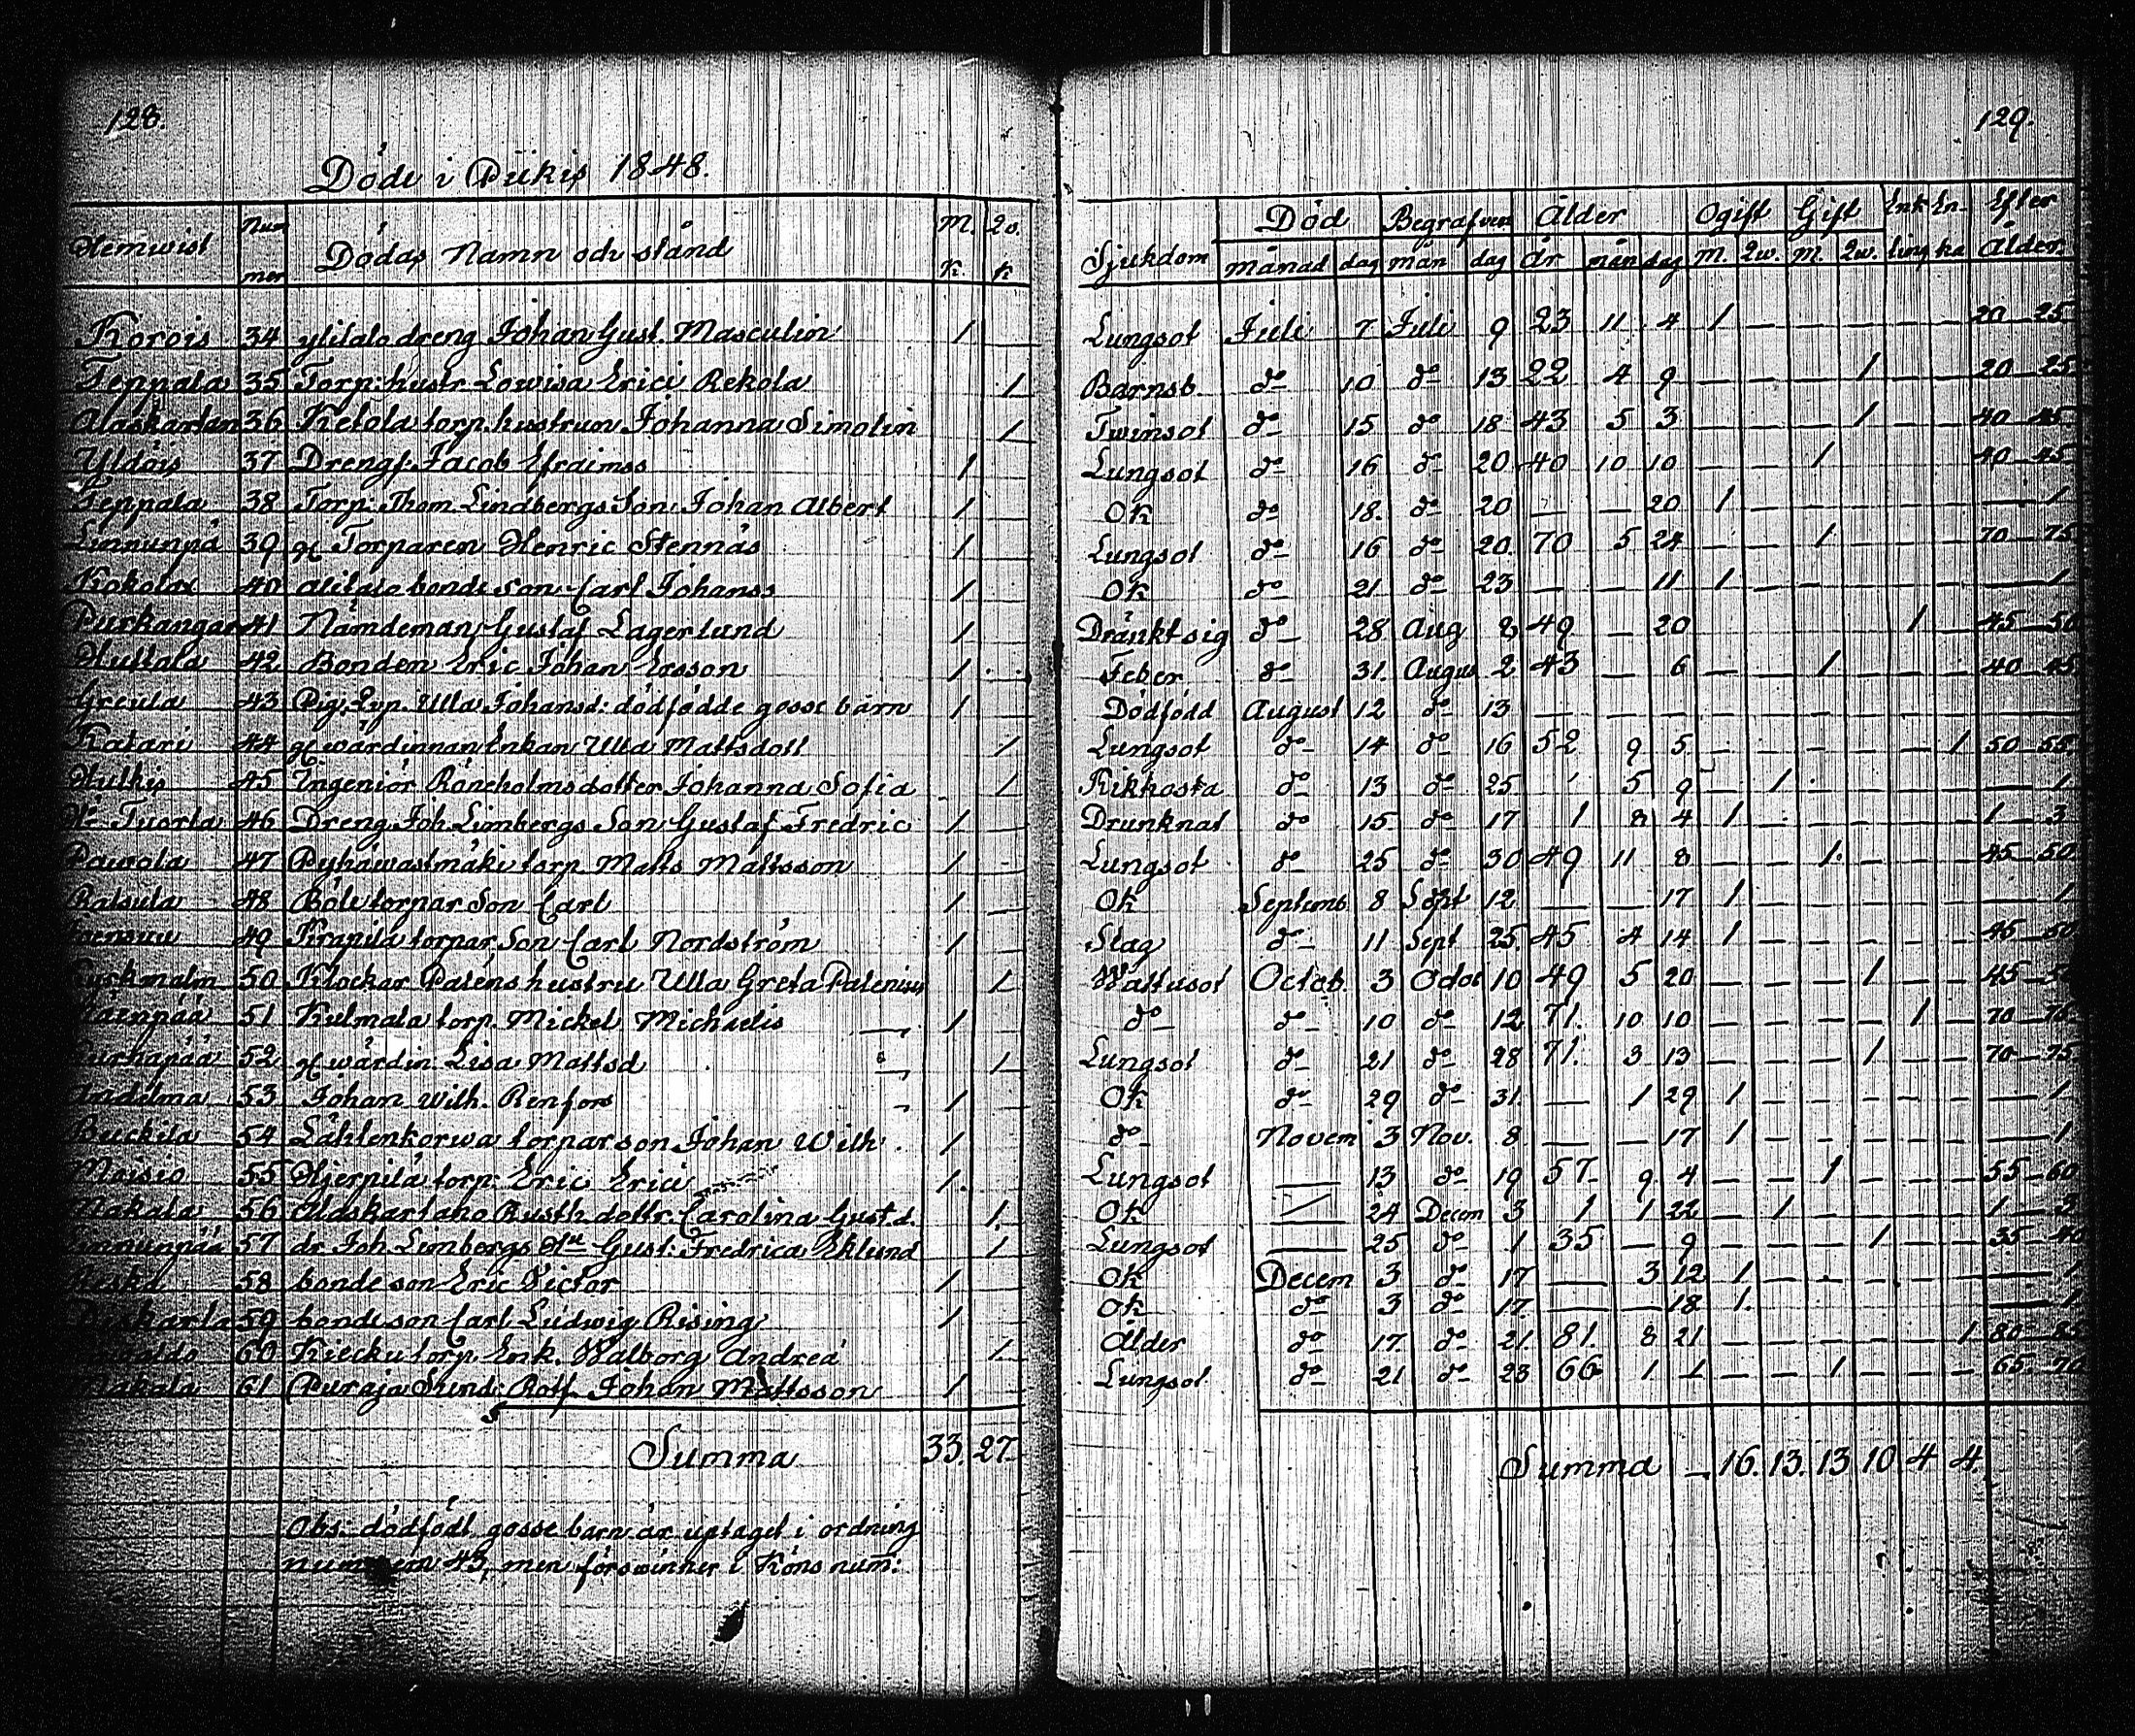 128.
129.
Döde i Piikis 1848.
Hemwist Nummer Dödas Namn och stånd M.K. Qv.K Sjukdom Död månad dag Begrafven mån dag Ålder år mån dag Ogift M. Qw. Gift M. Qw. Enkling Enka Efter Ålder.
Korois 34 ylitalo dreng Johan Gust. Masculin 1 Lungsot Juli 7 Juli 9 23 11 4 1 — — — — — 20—25
Teppala 35 Torp: hustr Lowisa Erici Rekola 1 Barnsb. do 10 do 13 22 4 9 — — — 1 — — 20—25
Alaskartan 36 Ketola torp. hustrun Johanna Simolin 1 Twinsot do 15 do 18 43 5 3 — — — 1 — — 40—45
Yldöis 37 Drengs. Jacob Efraimss 1 Lungsot do 16 do 20 40 10 10 — — 1 — — — 40—45
Teppala 38 Torp: Thom. Lindbergs Son: Johan Albert 1 OK do 18. do 20 — — 20 1 — — — — — — 1
Linnunpä 39 gl Torparen Henric Stennäs 1 Lungsot do 16 do 20. 70 5 24 — — 1 — — — 70—75
Kokola 40 alitalo bonde son Carl Johanss 1 OK do 21 do 23 — — 11 1 — — — — — — 1
Purkangar 41 Nämdeman Gustaf Lagerlund 1 Dränkt sig do 28 Aug 8 49 — 20 1 — 45—50
Huttala 42 Bonden Eric Johan Ersson 1 Feber do 31. Augus 2 43 — 6 — 1 — — — 40—45
Greula 43 Pig. Ulla Johansd: dödfödde gosse barn 1 Dödfödd August 12 do 13 — — — — — — — — — —
Katari 44 gl wärdinnan Enkan Ulla Mattsdott 1 Lungsot do 14 do 16 52 9 5 — — — — — 1 50—55
45 Ingeniör Röneholms dotter Johanna Sofia 1 Kikhosta do 13 do 25 5 9 — 1 — — — — — 1
Tuorla 46 Dreng Joh. Limbergs Son Gustaf Fredric 1 Drunknat do 15. do 17 1 8 4 1 — — — — — 1—3
Pawola 47 Pyhäwastmäki torp. Matts Mattsson 1 Lungsot do 25 do 30 49 11 8 — — 1. — — — 45—50
Ratsula 48 Böle torpar Son Carl 1 OK Septemb 8 Sept 12 — — 17 1 — — — — — — 1
49 Krapila torpar Son Carl Nordström 1 Slag do 11 Sept 25 45 4 14 1 — — — — — 45—50
50 Klockar Paléns hustru Ulla Greta Palenius 1 Wattusot Octob. 3 Octob 10 49 5 20 — — — 1 — — 45—50
51 Kulmala torp. Mickel Michaelis 1 do do 10 do 12 71. 10 10 — — — — 1 — 70—75
52 gl wärdin: Lisa Mattsd 1 Lungsot do 21 do 28 71. 3 13 — — — 1 — — 70—75
53 Johan Wilh. Renfors 1 OK do 29 do 31. — 1 29 1 — — — — — — 1
Buckila 54 Lählenkorwa torpar son Johan Wilh. 1 do Novem 3 Nov. 8 — — 17 1 — — — — — — 1
Moisio 55 Hjerpilä torp: Eric Erici 1. Lungsot — 13 do 19 57 9 4 — — 1 — — — 55—60
Makala 56 Alaskartano Rusth. dottr. Carolina Gust.d. 1. OK — 24 Decem 3 1 1 22 — 1 — — — — 1—3
57 dr. Joh. Limbergs Gust: Fredrica Eklund 1 Lungsot — 25 do 1 35 — 9 — — — 1 — — 35—40
58 bonde son Eric Victor 1 OK Decem 3 do 17 — 3 12 1 — — — — — — 1
59 bonde son Carl Ludwig Rising 1 OK do 3 do 17. — — 18 1. — 1
60 Kiecku torp. Enk. Walborg Andreä 1. Ålder do 17. do 21. 81. 8 21 — — — — — 1 80—85
Makala 61 Puraja Sund: Rotf. Johan Mattsson 1 Lungsot do 21 do 23 66 1 1 — — 1 — — 65—70
Summa 33. 27. Summa — 16. 13. 13 10 4 4.
Obs: dödfödt gosse barn är uptaget i ordning
43, men förswinner i Köns num: